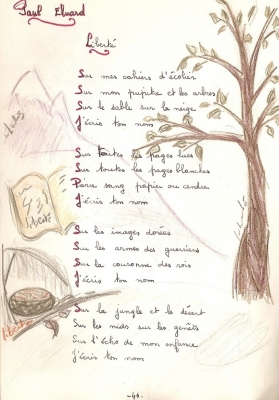 Paul Eluard
Liberté
Sur mes cahiers d'écolier
Sur mon pupitre et les arbres
Sur le sable sur la neige
J'écris ton nom
Sur toutes les pages lues
Sur toutes les pages blanches
Pierre sang papier ou cendre
J'écris ton nom
Sur les images dorées
Sur les armes des guerriers
Sur la couronne des rois
J'écris ton nom
Sur la jungle et le désert
Sur les nids sur les genêts
Sur l'écho de mon enfance
J'écris ton nom
liberté